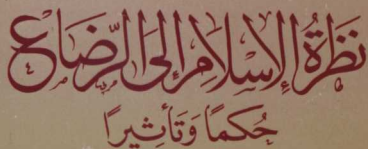 نَظْرَةُ الإِسْلَامِ إِلَى الرَّضَاعِ
حُكْمًا وَتَأْثِيرًا